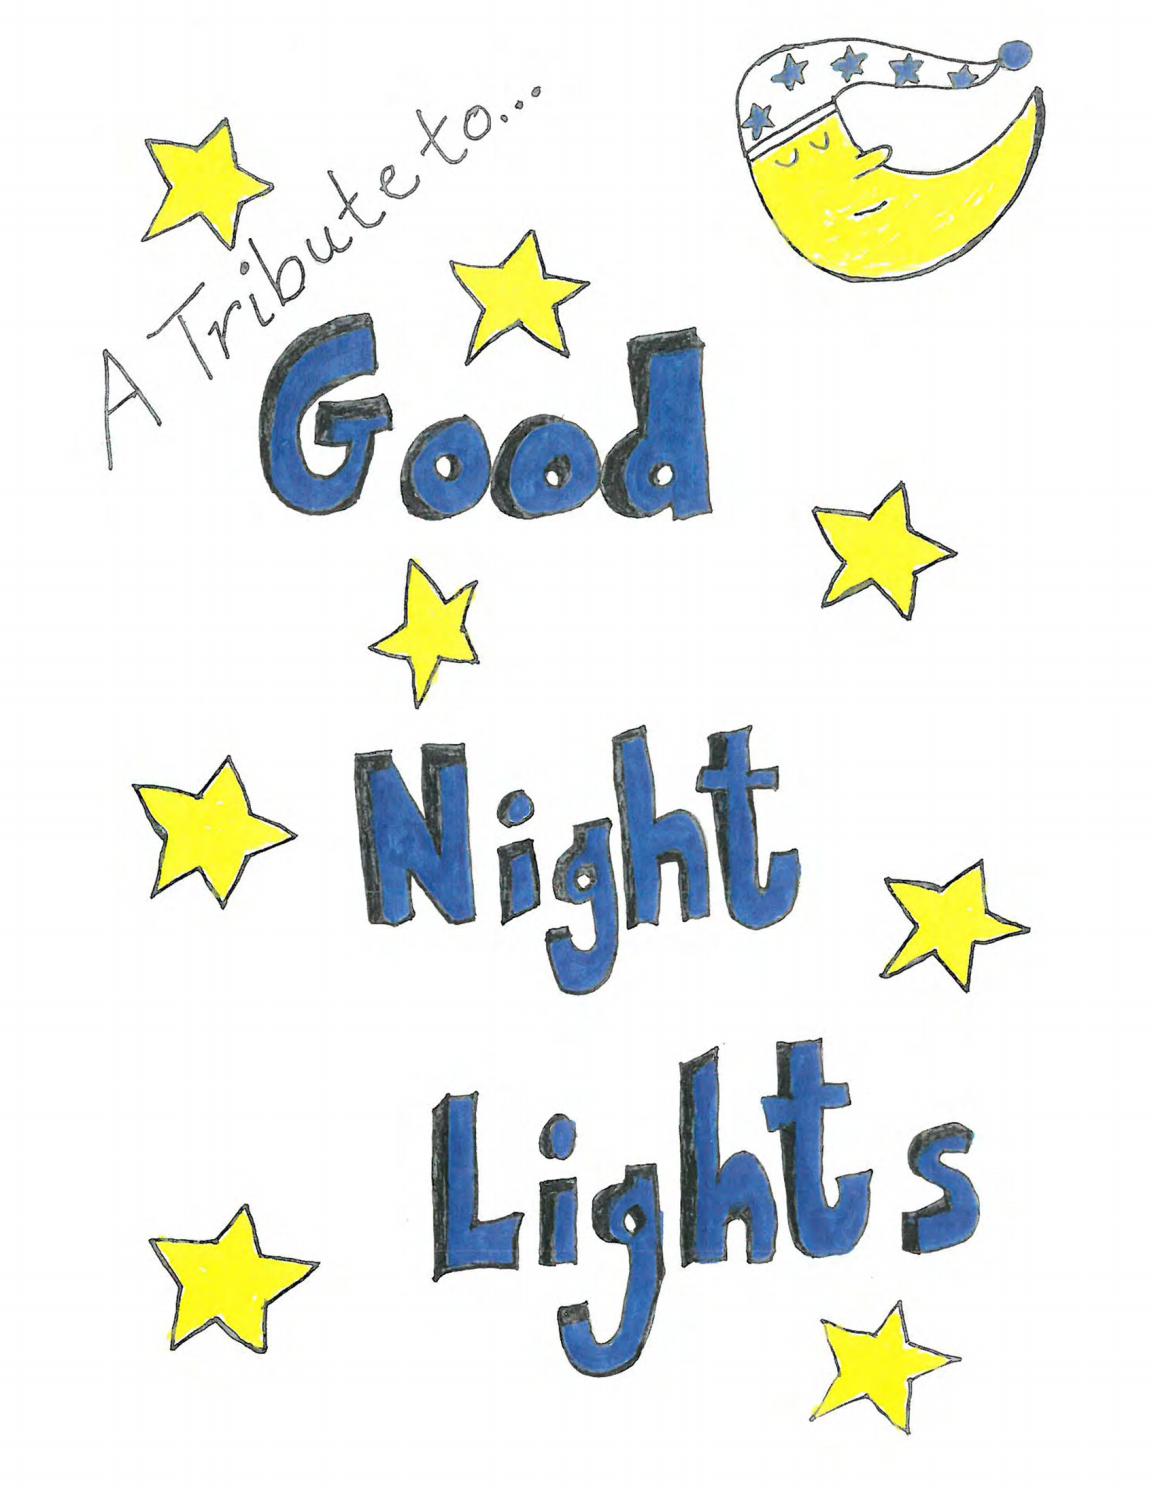 A Tribute to...
Good
Night
Lights